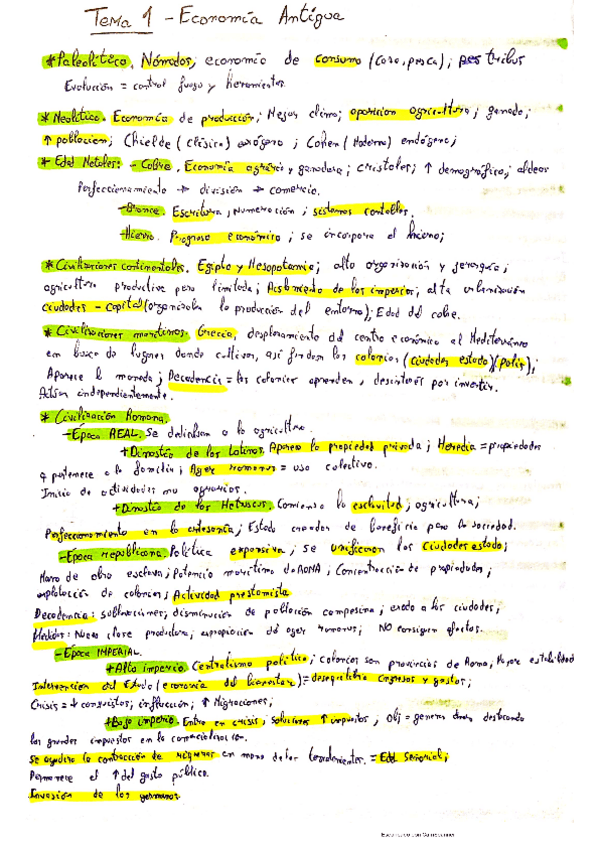 Tema 1 - Economía Antigua
* Paleolítico. Nómadas, economía de consumo (caza, pesca); tribus
Evolución = control fuego y herramientas.
* Neolítico. Economía de producción; Mejor clima; aparicion agricultura; ganado;
↑ poblacion; Childe (clásica) exógeno; Cohen (Moderna) endógeno;
* Edad Metales: - Cobre. Economía agraria y ganadera; cristales; ↑ demográfico; aldeas
Perfeccionamiento → división → comercio.
- Bronce. Escritura, numeración; sistemas contables.
- Hierro. Progreso económico; se incorpora el hierro;
* Civilizaciones continentales. Egipto y Mesopotamia; alta organización y jerarquía;
agricultura productiva pero limitada; Aislamiento de los imperios; alta urbanización
ciudades - capital (organizaba la producción del entorno); Edad del cobre.
* Civilizaciones marítimas. Grecia, desplazamiento del centro económico al Mediterráneo
en busca de lugares donde cultivar, así fundan las colonias (ciudades estado)(polis);
Aparece la moneda; Decadencia = las colonias aprenden, desinterés por invertir.
Actúan independientemente.
* Civilización Romana.
- Época REAL. Se dedicaban a la agricultura.
+ Dinastía de los Latinos. Aparece la propiedad privada; Heredia = propiedades
q pertenece a la familia; Ager romanus = uso colectivo.
Inicio de actividades no agrarias.
+ Dinastía de los Hetruscos. Comienza la esclavitud; agricultura;
Perfeccionamiento en la artesanía; Estado creador de beneficio para la sociedad.
- Época republicana. Política expansiva; se unifican las ciudades estado;
Mano de obra esclava; potencia marítima de ROMA; Concentracción de propiedades;
explotación de colonias; Actividad prestamista
Decadencia: sublevaciones; disminución de población campesina; exodo a las ciudades;
Medidas: Nueva clase productora; expropiación del ager romanus; NO consiguen efectos.
- Época IMPERIAL.
+ Alto imperio. Centralismo político; colonias son provincias de Roma, Mayor estabilidad
Intervención del Estado (economía del bienestar) = desequilibrio ingresos y gastos;
Crisis = ↓ conquistas; inflacción; ↑ Migraciones;
+ Bajo imperio. Entra en crisis, soluciones ↑ impuestos; Obj = generar
los grandes impuestos en la comercialización.
Se agudiza la contracción de riquezas en mano de los terratenientes. = Edad Señorial;
Permanece el ↑ del gasto público.
Invasión de los germanos.